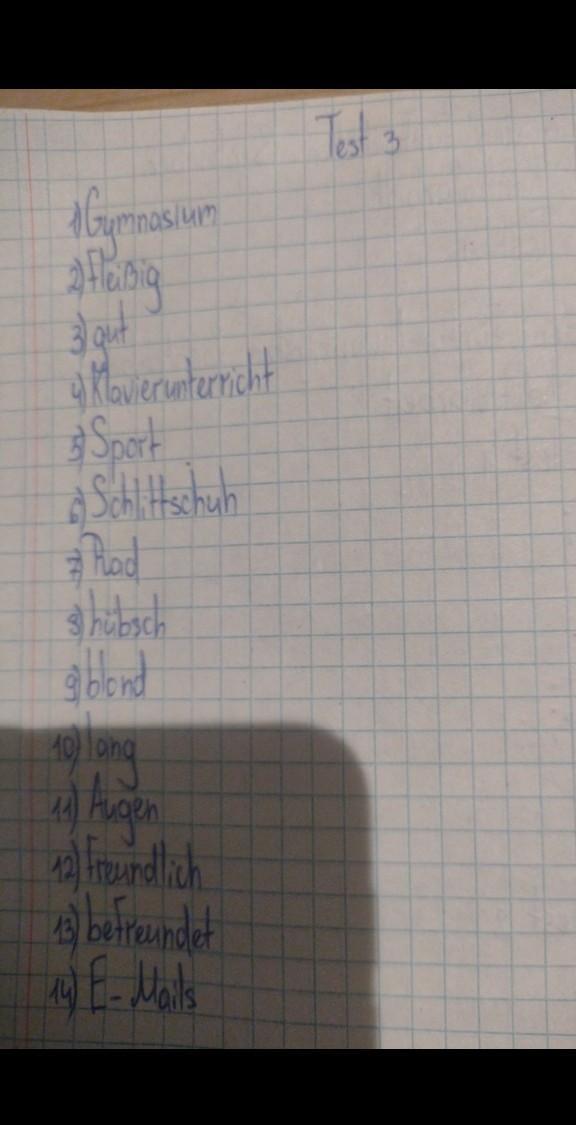 Test 3
1) Gymnasium
2) fleißig
3) gut
4) Klavierunterricht
5) Sport
6) Schlittschuh
7) Rad
8) hübsch
9) blond
10) lang
11) Augen
12) freundlich
13) befreundet
14) E-Mails